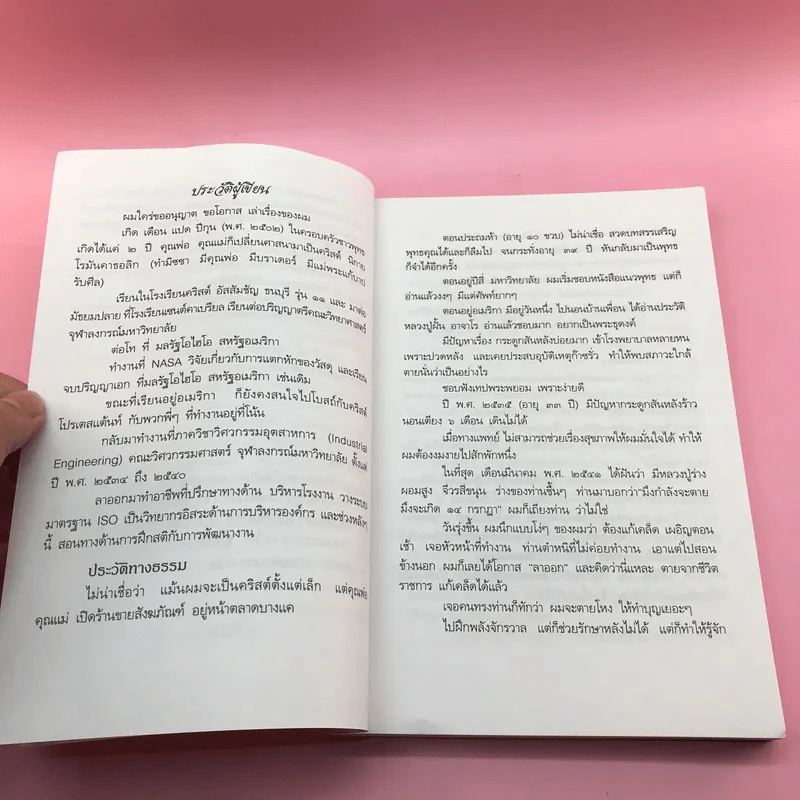 ประวัติผู้เขียน
ผมใคร่ขออนุญาต ขอโอกาส เล่าเรื่องของผม
เกิด เดือน แปด ปีกุน (พ.ศ. ๒๕๐๒) ในครอบครัวชาวพุทธ
เกิดได้แค่ ๒ ปี คุณพ่อ คุณแม่ก็เปลี่ยนศาสนามาเป็นคริสต์ นิกาย
โรมันคาธอลิก (ทำมิซซา มีคุณพ่อ มีบราเดอร์ มีแม่พระแก้บาป
รับศีล)
เรียนในโรงเรียนคริสต์ อัสสัมชัญ ธนบุรี รุ่น ๑๑ และ มาต่อ
มัธยมปลาย ที่โรงเรียนเซนต์คาเบรียล เรียนต่อปริญญาตรีคณะวิทยาศาสตร์
จุฬาลงกรณ์มหาวิทยาลัย
ต่อโท ที่ มลรัฐโอไฮโอ สหรัฐอเมริกา
ทำงานที่ NASA วิจัยเกี่ยวกับการแตกหักของวัสดุ และเรียน
จบปริญญาเอก ที่มลรัฐโอไฮโอ สหรัฐอเมริกา เช่นเดิม
ขณะที่เรียนอยู่อเมริกา ก็ยังคงสนใจไปโบสถ์กับคริสต์
โปรเตสแต้นท์ กับพวกพี่ๆ ที่ทำงานอยู่ที่โน้น
กลับมาทำงานที่ภาควิชาวิศวกรรมอุตสาหการ (Industrial
Engineering) คณะวิศวกรรมศาสตร์ จุฬาลงกรณ์มหาวิทยาลัย ตั้งแต่
ปี พ.ศ. ๒๕๓๔ ถึง ๒๕๔๐
ลาออกมาทำอาชีพที่ปรึกษาทางด้าน บริหารโรงงาน วางระบบ
มาตรฐาน ISO เป็นวิทยากรอิสระด้านการบริหารองค์กร และช่วงหลังๆ
นี้ สอนทางด้านการฝึกสติกับการพัฒนางาน
ประวัติทางธรรม
ไม่น่าเชื่อว่า แม้นผมจะเป็นคริสต์ตั้งแต่เล็ก แต่คุณพ่อ
คุณแม่ เปิดร้านขายสังฆภัณฑ์ อยู่หน้าตลาดบางแค
ตอนประถมห้า (อายุ ๑๐ ขวบ) ไม่น่าเชื่อ สวดบทสรรเสริญ
พุทธคุณได้และก็ลืมไป จนกระทั่งอายุ ๓๙ ปี หันกลับมาเป็นพุทธ
ก็จำได้อีกครั้ง
ตอนอยู่ปีสี่ มหาวิทยาลัย ผมเริ่มชอบหนังสือแนวพุทธ แต่ก็
อ่านแล้วงงๆ มีแต่ศัพท์ยากๆ
ตอนอยู่อเมริกา มีอยู่วันหนึ่ง ไปนอนบ้านเพื่อน ได้อ่านประวัติ
หลวงปู่ฝั้น อาจาโร อ่านแล้วชอบมาก อยากเป็นพระธุดงค์
มีปัญหาเรื่อง กระดูกสันหลังบ่อยมาก เข้าโรงพยาบาลหลายหน
เพราะปวดหลัง และเคยประสบอุบัติเหตุก๊าซรั่ว ทำให้พบสภาวะใกล้
ตายนั้นว่าเป็นอย่างไร
ชอบฟังเทปพระพยอม เพราะง่ายดี
ปี พ.ศ. ๒๕๓๕ (อายุ ๓๓ ปี) มีปัญหากระดูกสันหลังร้าว
นอนเตียง ๖ เดือน เดินไม่ได้
เมื่อทางแพทย์ ไม่สามารถช่วยเรื่องสุขภาพให้ผมมั่นใจได้ ทำให้
ผมต้องงมงายไปสักพักหนึ่ง
ในที่สุด เดือนมีนาคม พ.ศ. ๒๕๔๑ ได้ฝันว่า มีหลวงปู่ร่าง
ผอมสูง จีวรสีขนุน ร่างของท่านชื้นๆ ท่านมาบอกว่า"มึงกำลังจะตาย
มึงจะเกิด ๑๔ กรกฎา" ผมก็เถียงท่าน ว่าไม่ใช่
วันรุ่งขึ้น ผมนึกแบบโง่ๆ ของผมว่า ต้องแก้เคล็ด เผอิญตอน
เช้า เจอหัวหน้าที่ทำงาน ท่านตำหนิที่ไม่ค่อยทำงาน เอาแต่ไปสอน
ข้างนอก ผมก็เลยได้โอกาส "ลาออก" และคิดว่านี่แหละ ตายจากชีวิต
ราชการ แก้เคล็ดได้แล้ว
เจอคนทรงท่านก็ทักว่า ผมจะตายโหง ให้ทำบุญเยอะๆ
ไปฝึกพลังจักรวาล แต่ก็ช่วยรักษาหลังไม่ได้ แต่ก็ทำให้รู้จัก